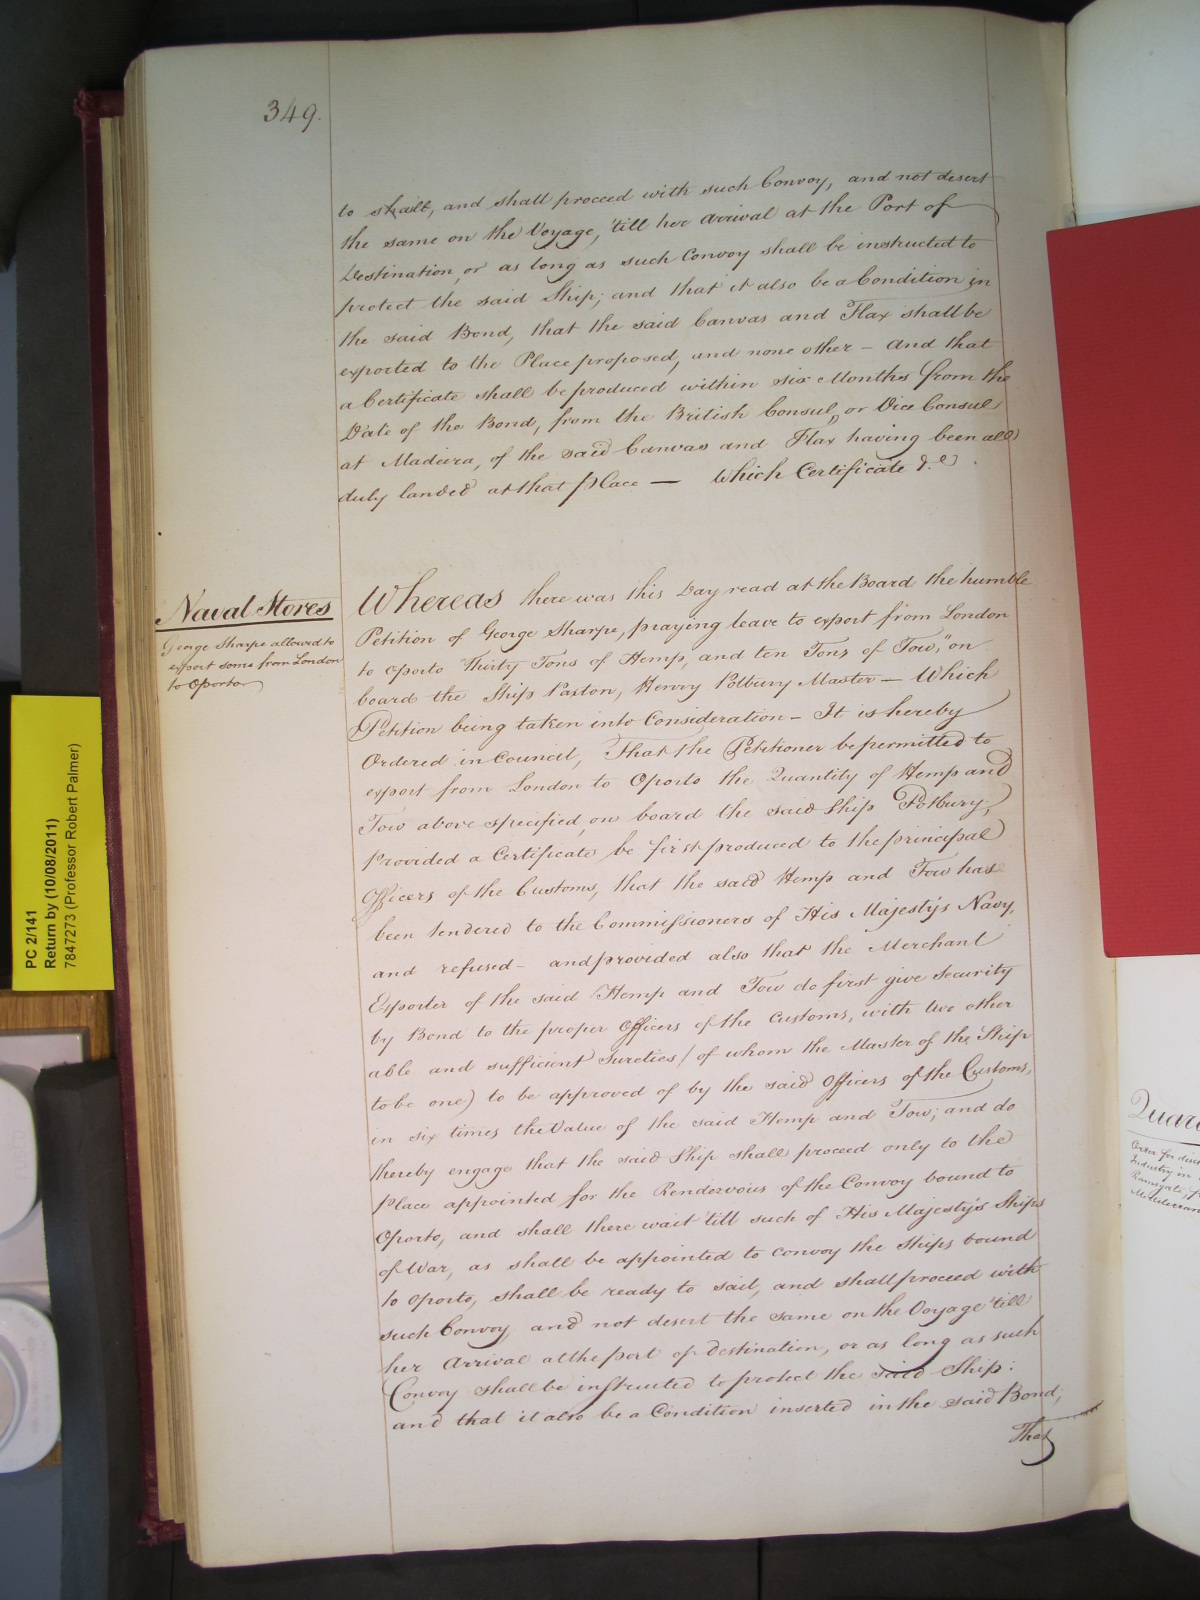 349.
to shall, and shall proceed with such Convoy, and not desert
the same on the Voyage, 'till her Arrival at the Port of
Destination, or as long as such Convoy shall be instructed to
protect the said Ship; and that it also be a Condition in
the said Bond, that the said Canvas and Flax shall be
exported to the Place proposed, and none other – And that
a Certificate shall be produced within six Months from the
Date of the Bond, from the British Consul, or Vice Consul
at Madeira, of the said Canvas and Flax having been all
duly landed at that place — Which Certificate &c.
Naval Stores
George Sharpe allowed to
export some from London
to Oporto
Whereas there was this Day read at the Board the humble
Petition of George Sharpe, praying leave to export from London
to Oporto Thirty Tons of Hemp, and ten Tons of Tow," on
board the Ship Paxton, Henry Potbury Master – Which
Petition being taken into Consideration – It is hereby
Ordered in Council, That the Petitioner be permitted to
export from London to Oporto the Quantity of Hemp and
Tow above specified, on board the said Ship Potbury,
Provided a Certificate be first produced to the principal
Officers of the Customs, that the said Hemp and Tow has
been tendered to the Commissioners of His Majesty's Navy,
and refused – and provided also that the Merchant
Exporter of the said Hemp and Tow do first give Security
by Bond to the proper Officers of the Customs, with two other
able and sufficient Sureties (of whom the Master of the Ship
to be one) to be approved of by the said Officers of the Customs,
in six times the Value of the said Hemp and Tow; and do
thereby engage that the said Ship shall proceed only to the
Place appointed for the Rendezvous of the Convoy bound to
Oporto, and shall there wait 'till such of His Majesty's Ships
of War, as shall be appointed to Convoy the Ships bound
to Oporto, shall be ready to sail, and shall proceed with
such Convoy, and not desert the same on the Voyage 'till
her Arrival at the port of Destination, or as long as such
Convoy shall be instructed to protect the said Ship:
and that it also be a Condition inserted in the said Bond,
That
PC 2/141
Return by (10/08/2011)
7847273 (Professor Robert Palmer)
Order for
Industry in